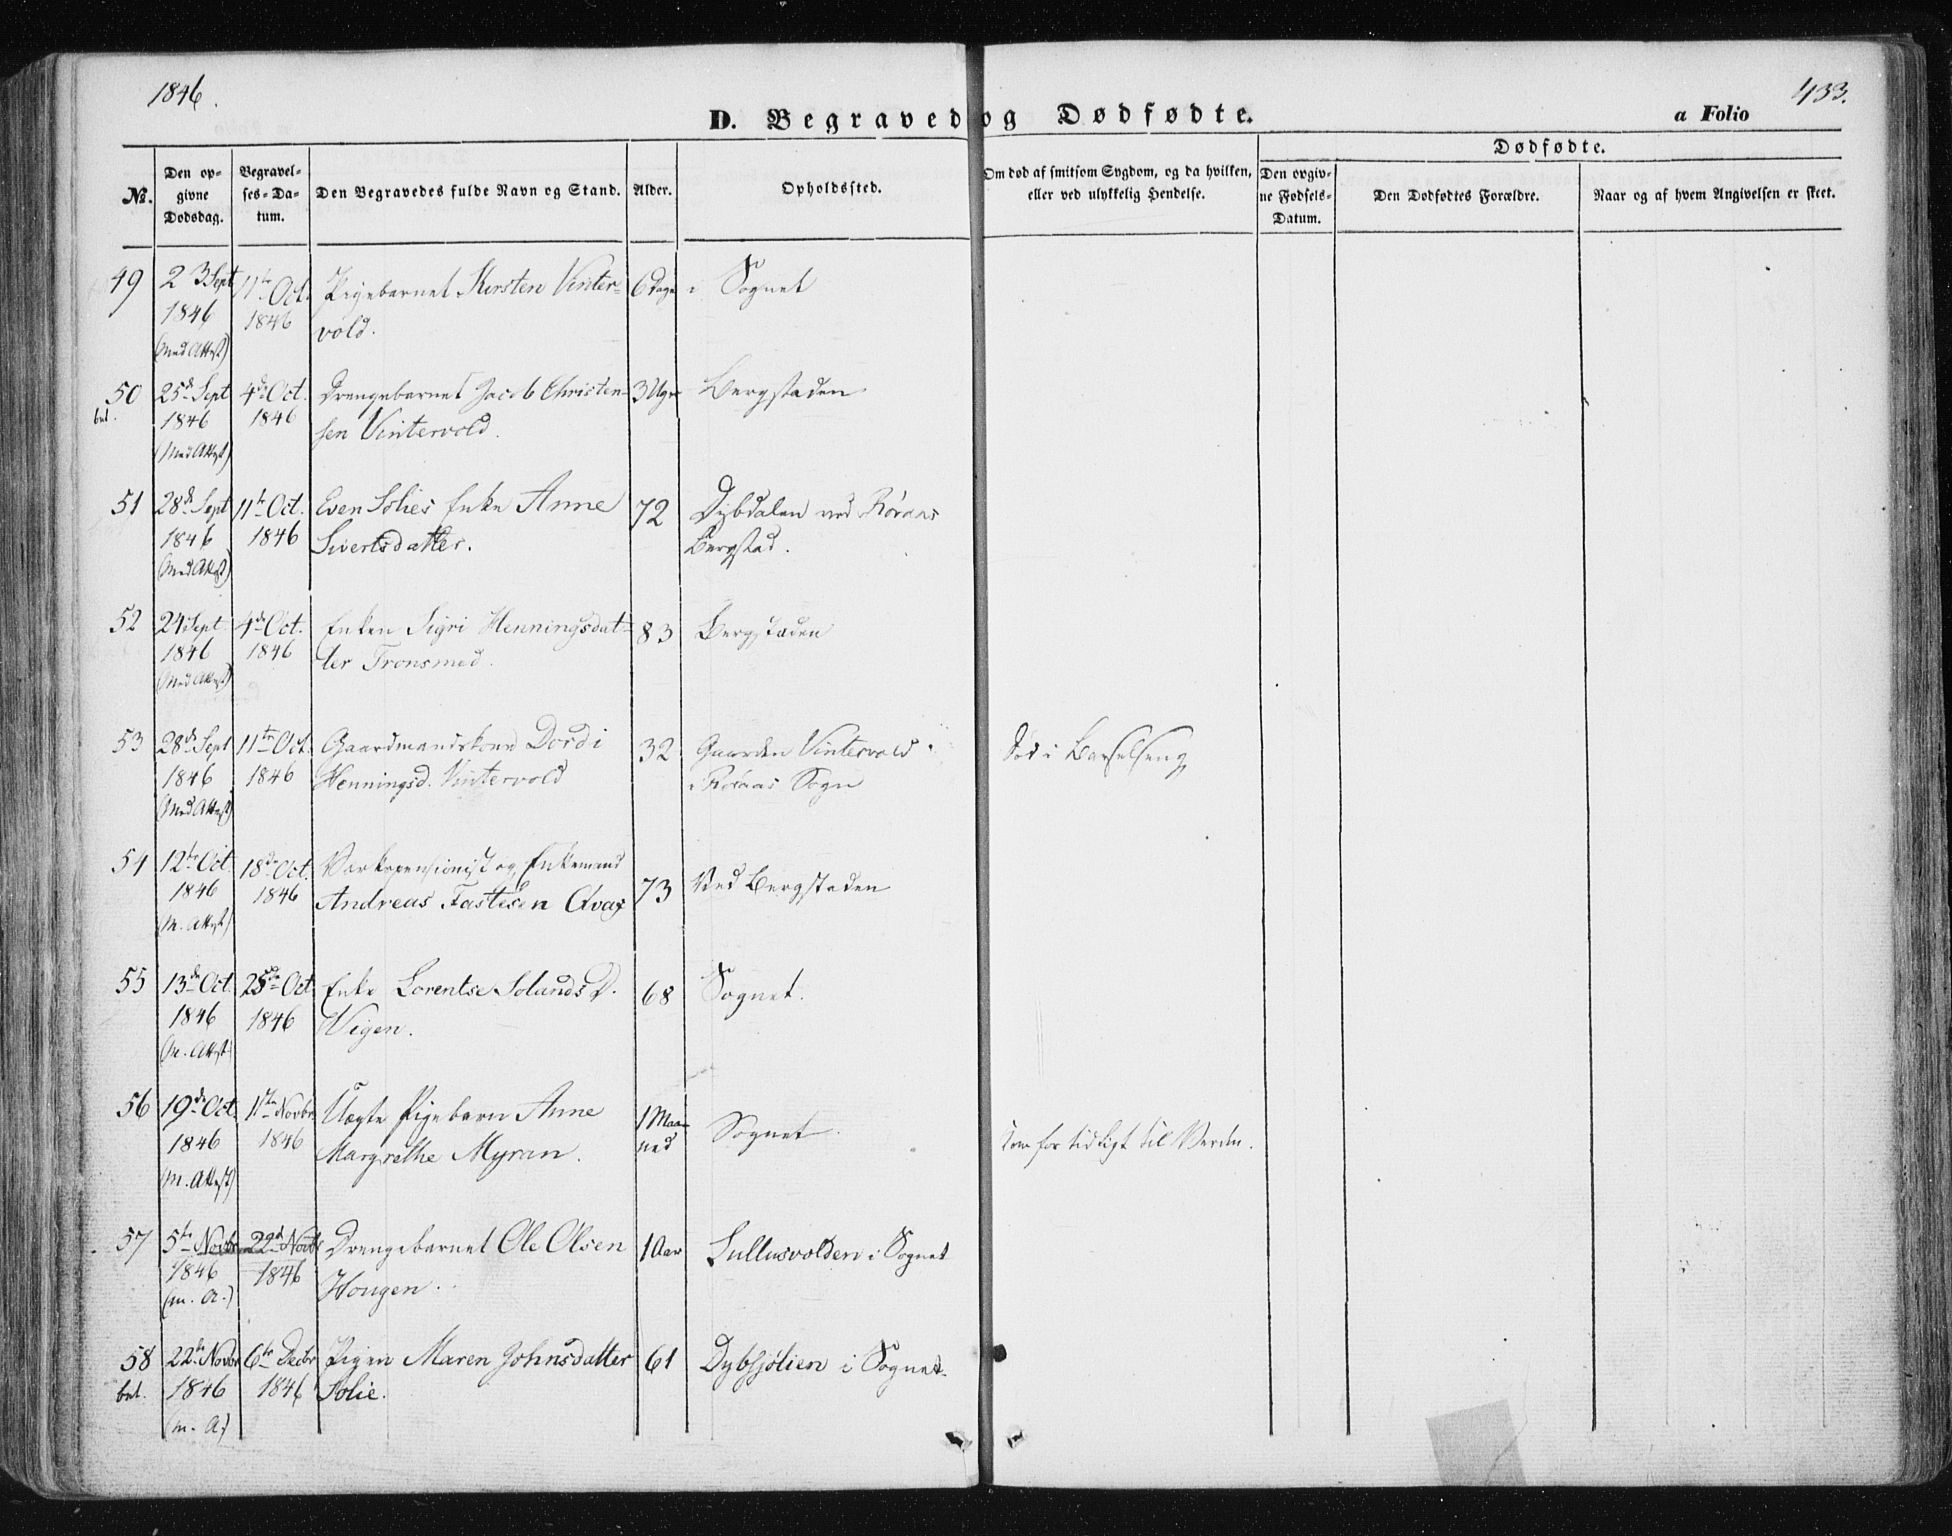 1846.
433.
D. Begravede og Dødfødte.
a Folio
No.
Den opgivne Dødsdag.
Begravelses-Datum.
Den Begravedes fulde Navn og Stand.
Alder.
Opholdssted.
Om død af smitsom Sygdom, og da hvilken, eller ved ulykkelig Hendelse.
Dødfødte.
Den opgivne Fødsels-Datum.
Den Dødfødtes Forældre.
Naar og af hvem Angivelsen er skeet.
49 23 Sept 11te Oct. Pigebarnet Kirsten Vinter- 6 Dage i Sognet
1846 1846 vold.
(Med Attest)
50 25de Sept 4de Oct. Drengebarnet Jacob Christen- 3 Uger Bergstaden
bet. 1846 1846 sen Vintervold.
(Med Attest)
51 28de Sept 11te Oct. Even Solies Enke Anne 72 Dybdalen ved Røraas
1846 1846 Sivertsdatter. Bergstad.
(Med Attest)
52 24 Sept 4de Oct. Enken Sigri Henningsdat- 83 Bergstaden
1846 1846 ter Tronsmed.
(Med Attest)
53 28de Sept 11te Oct. Gaardmandskone Dordi 32 Gaarden Vintervold Død i Barselseng
1846 1846 Henningsd. Vintervold i Røraas Sogn
(Med Attest)
54 12te Oct. 18de Oct. Værkspensionist og Enkemand
1846 1846 Andreas Fastesen 73 Ved Bergstaden
(M. Attest)
55 13de Oct. 25de Oct Enke Lorentse D. 68 Sognet.
1846 1846 Wigen.
(M. Attest)
56 19de Oct. 1ste Novbr Uægte Pigebarn Anne 1 Maa- Sognet.
1846 1846 Margrethe Myran. ned Kom for tidligt til Verden.
(M. Attest)
57 5te Novbr 22de Novbr Drengebarnet Ole Olsen 1 Aar Sullusvolden i Sognet
1846 1846 Hougen.
(m. A.)
58 22de Novbr 6te Decbr Pigen Maren Johnsdatter 61 Dybsjølien i Sognet.
bet. 1846 1846 Solie.
(m. A.)